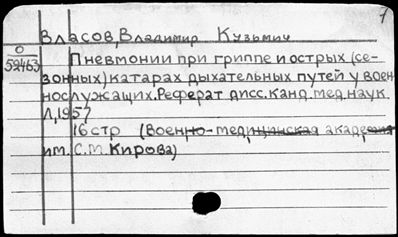 1
Власов, Владимир Кузьмич
О
52463
Пневмонии при гриппе и острых (се-
зонных) катарах дыхательных путей у воен
нослужащих. Реферат дисс. канд. мед. наук
Л, 1957
16 стр (Военно-медицинская академия
им. С. М. Кирова)